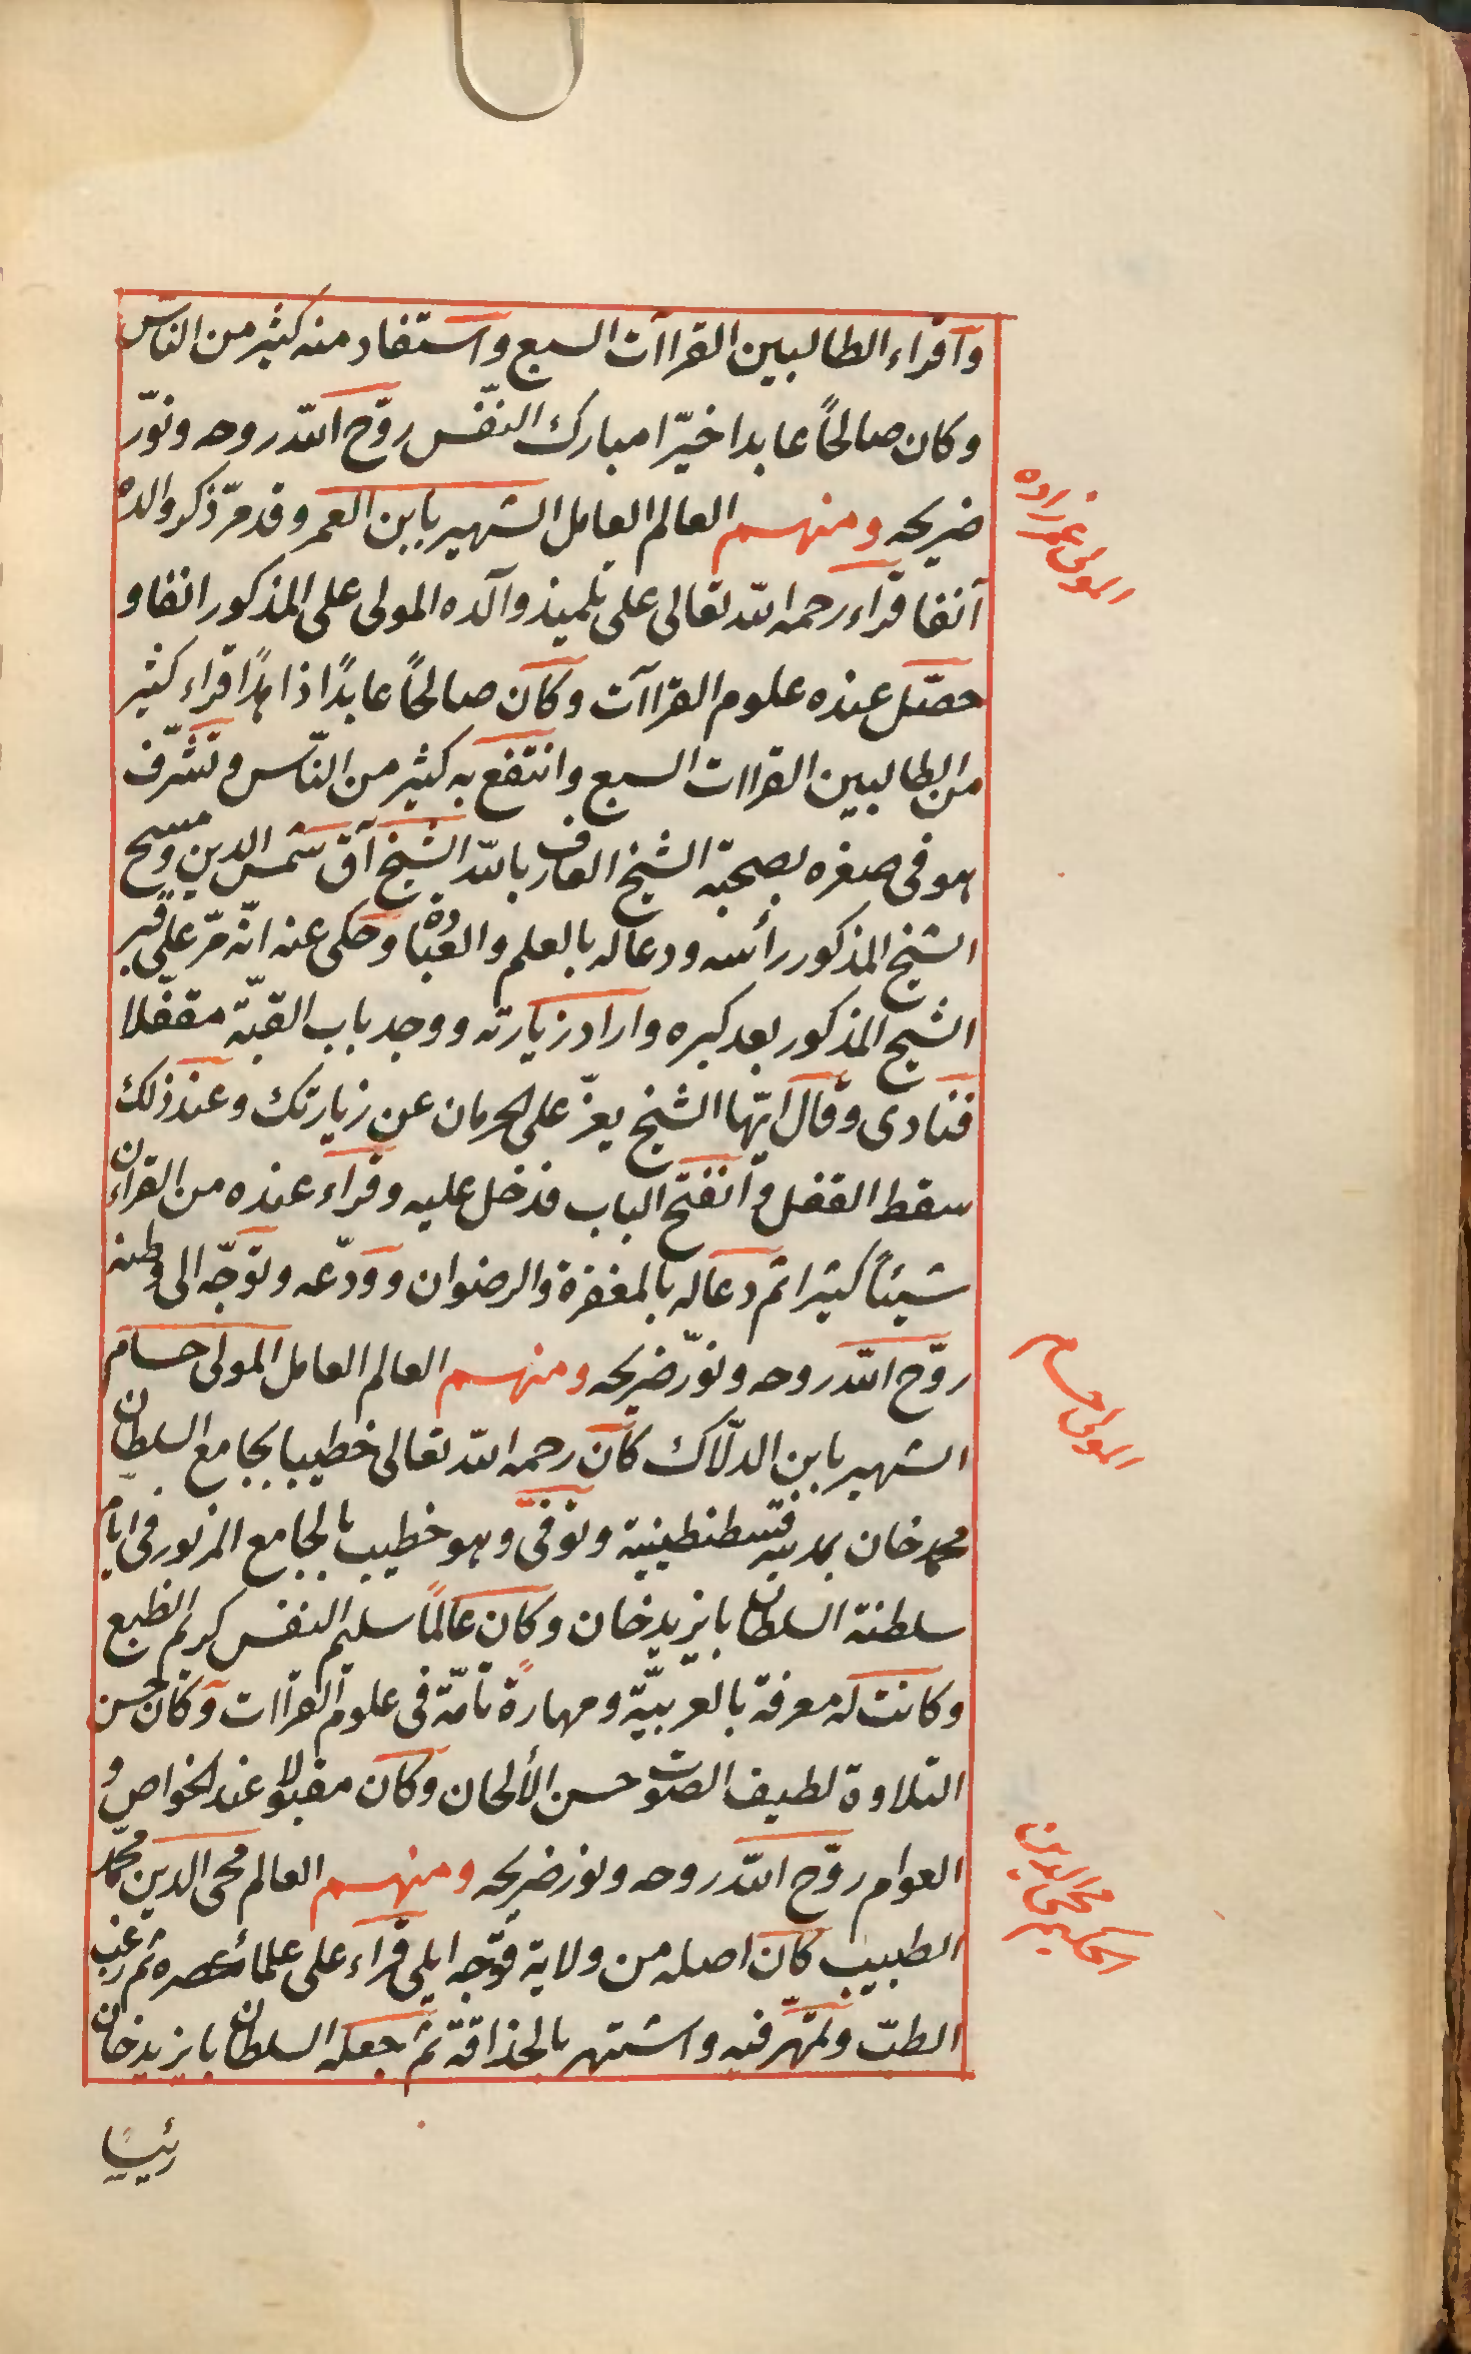 واقراء الطالبين القراآت السبع واستفاد منه كثير من الناس
وكان صالحاً عابدا خيّرا مبارك النفّس روّح الله روحه ونوّر
ضريحه ومنهم العالم العامل الشهير بابن العمر وقد مرّ ذكر والده
آنفا قراء رحمه الله تعالى على تلميذ والده المولى على المذكور انفا و
حصّل عنده علوم القراآت وكان صالحاً عابدًا زاهدًا اقراء كثير
من الطالبين القراات السبع وانتفع به كثير من النّاس وتشرّف
هو فى صغره بصحبة الشيخ العارف بالله الشيخ آق شمس الدين ومسح
الشيخ المذكور رأسه ودعا له بالعلم والعبادة وحكى عنه انّه مرّ على قبر
الشيخ المذكور بعد كبره واراد زيارته ووجد باب القبّة مقفّلا
فنادى وقال ايّها الشيخ يعزّ على الحرمان عن زيارتك وعند ذلك
سقط القفل وانفتح الباب فدخل عليه وقراء عنده من القران
شيئاً كثيرا ثم دعا له بالمغفرة والرضوان وودّعه وتوجّه الى وطنه
روّح الله روحه ونوّر ضريحه ومنهم العالم العامل المولى حسام
الشهير بابن الدلّاك كان رحمه الله تعالى خطيبا بجامع السلطان
محمد خان بمدينه قسطنطينية وتوفّى وهو خطيب بالجامع المزبور فى ايام
سلطنة السلطان بايزيد خان وكان عالماً سليم النفس كريم الطبع
وكانت له معرفة بالعربيّة ومهارةً تامّة فى علوم القراات وكان حسن
التلاوة لطيف الصوت حسن الألحان وكان مقبولا عند الخواص و
العوام روّح الله روحه ونور ضريحه ومنهم العالم محى الدين محمّد
الطبيب كان اصله من ولاية قوجه ايلى قراء على علماء عصره ثم رغب
الطبّ وتمهّر فيه واشتهر بالحذاقة ثم جعله السلطان بايزيد خان
رئيسًا
المولى عمرزاده
المولى حسام
الحكيم محى الدين